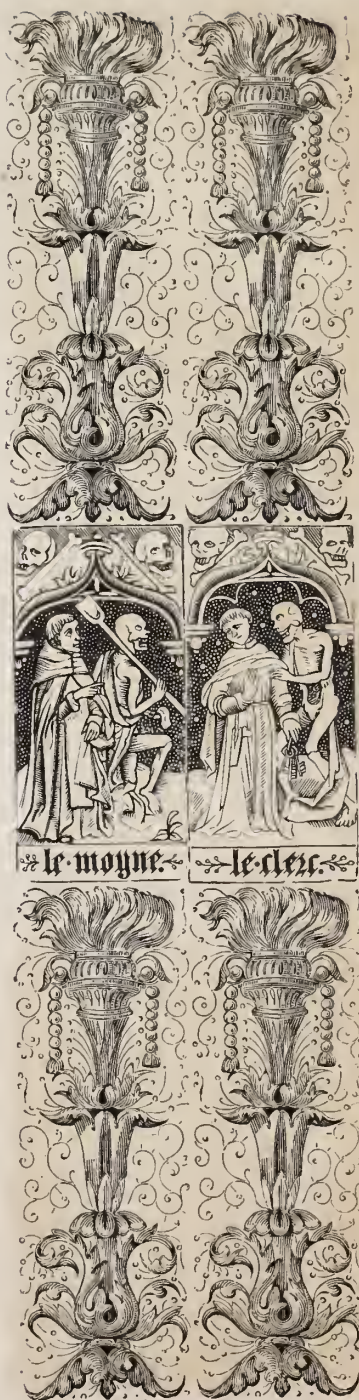 le·moyne·
le·clerc·